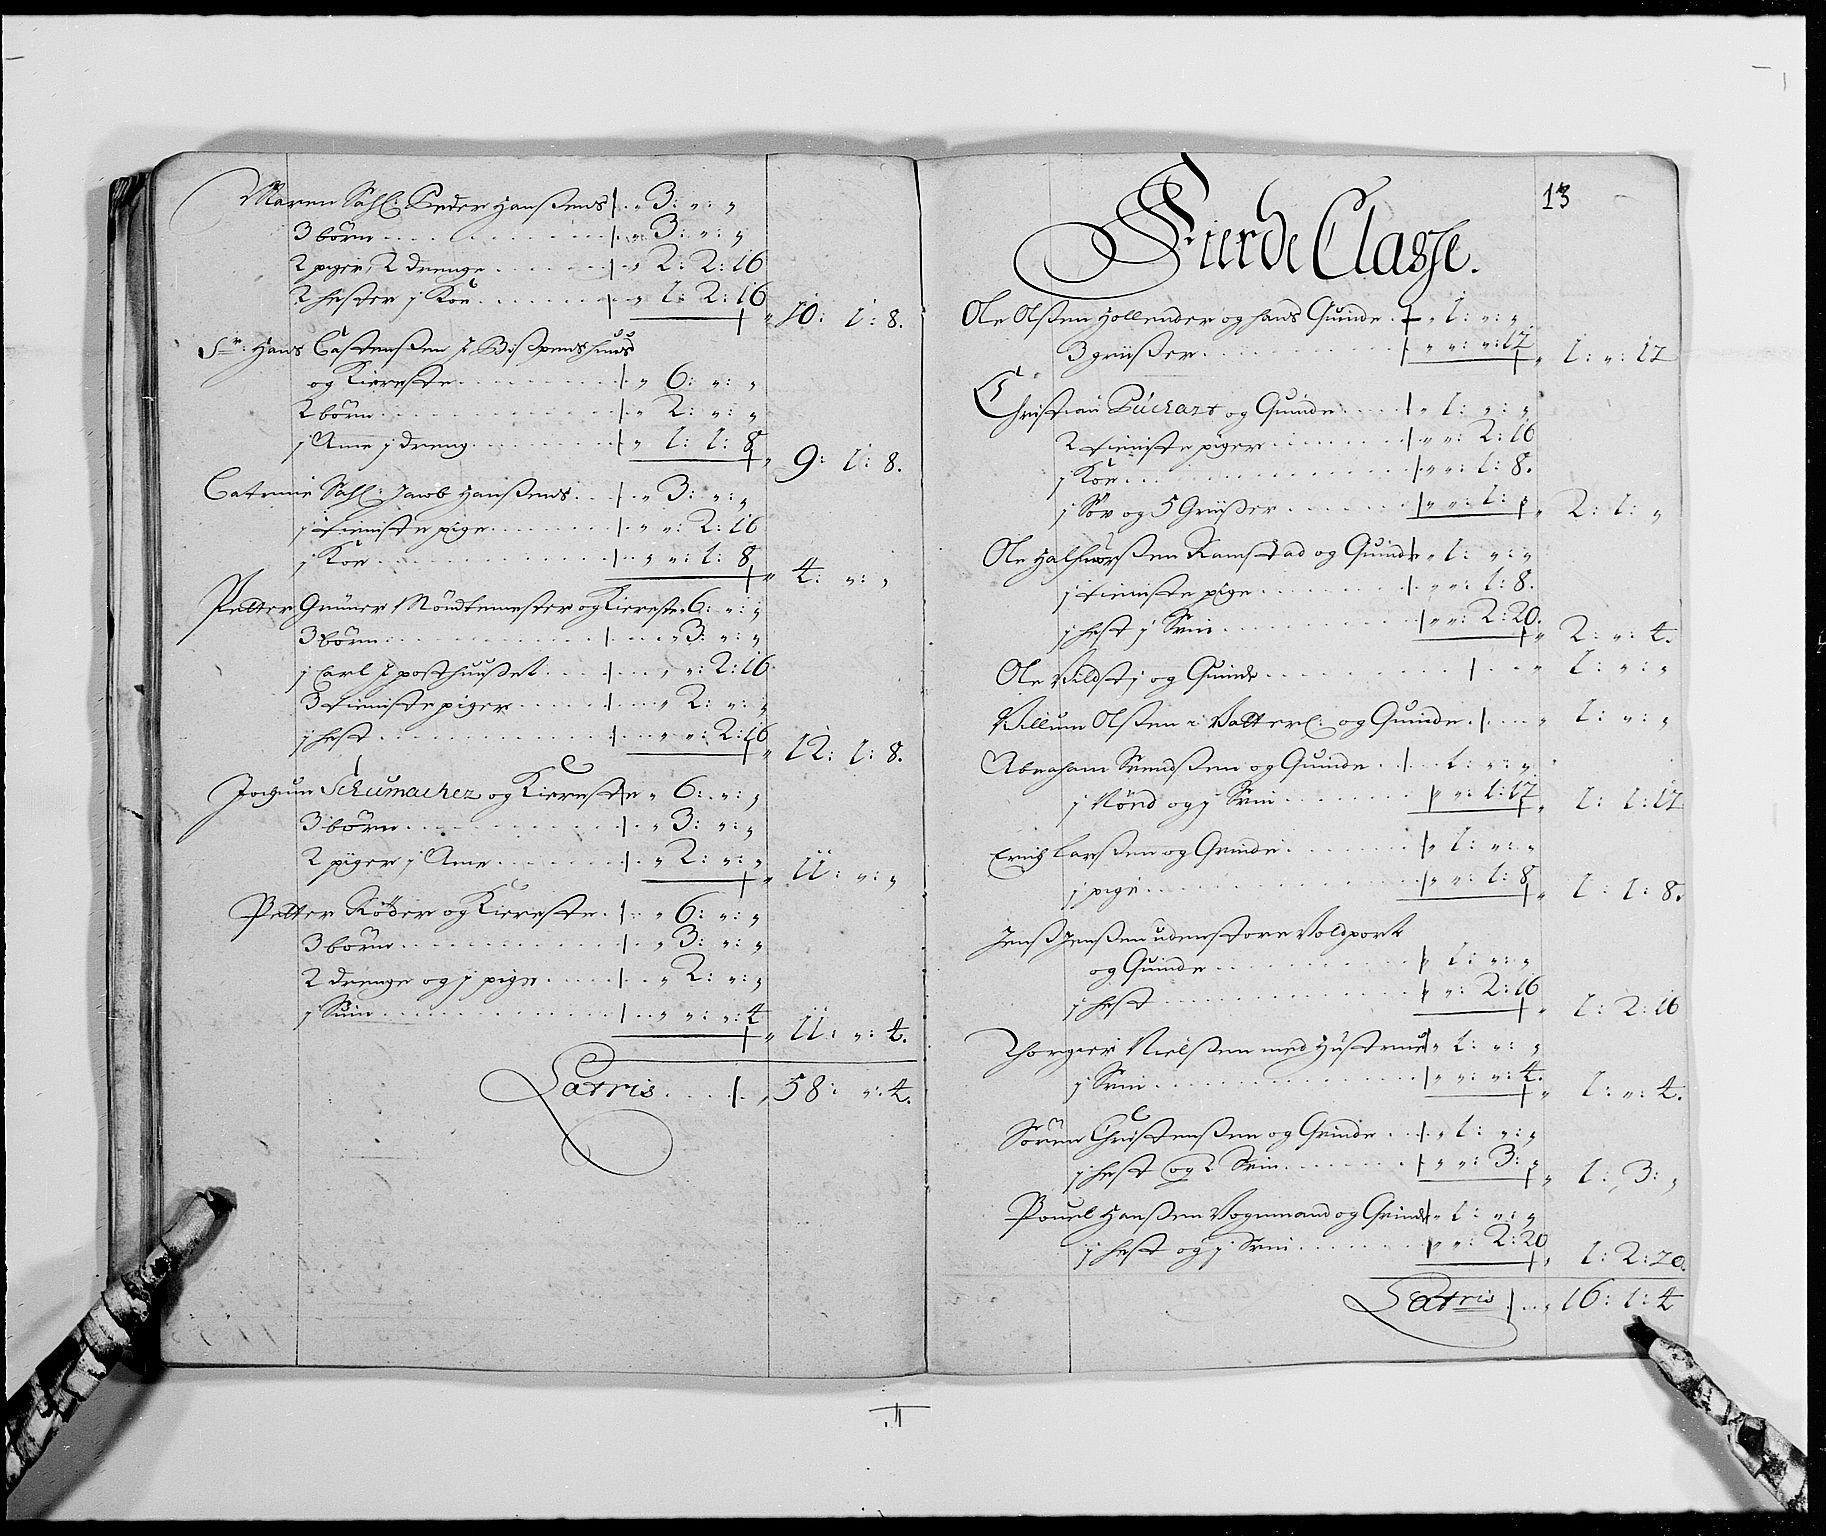 Maren Sahl: Peder Hanßens . „ 3: „: „
3 börn . . . „ 3: „: „
2 piger, 2 drenge . . . „ 2: 2: 16
2 hester j Koe . . . „ 1: 2: 16 „ 10: 1: 8.
Sr: Hans Castenßen I Bißpens huus
og Kiereste . . . „ 6: „: „
2 börn . . . „ 2: „: „
j Ame j dreng . . . „ 1: 1: 8 „ 9: 1: 8.
Catrine Sahl: Jacob Hanßens . . „ 3: „: „
j tieniste pige . . . „ „: 2: 16
j Koe . . . „ „: 1: 8 „ 4: „: „
Petter Grüner Möndtemester og Kiereste „ 6: „: „
3 börn . . . „ 3: „: „
j Carl I posthuußet . . . „ „: 2: 16
3 tieniste piger . . . „ 2: „: „
j hest . . . „ „: 2: 16 „ 12: 1: 8.
Jochum Schumacher og Kiereste „ 6: „: „
3 börn . . . „ 3: „: „
2 piger j Ame . . . „ 2: „: „ „ 11: „: „
Petter Röder og Kiereste . „ 6: „: „
3 börn . . . „ 3: „: „
2 drenge og j pige . . . „ 2: „: „
j Suin . . . „ „: „: 4 „ 11: „: 4.
Latris . . . „ 58: „: 4.
13
Fierde Classe.
Ole Olßen Hollender og hans Quinde . „ 1: „: „
3 griißer . . . „ „: „: 17 „ 1: „: 17
Christian Puchart og Quinde . . „ 1: „: „
2 tieniste piger . . . „ „: 2: 16
j Koe . . . „ „: 1: 8.
j Söe og 5 Griißer . . . „ „: 1: „ „ 2: 1: „
Ole Halfuorßen Ramstad og Quinde „ 1: „: „
j tieniste pige . . . „ „: 1: 8.
j hest j Svin . . . „ „: 2: 20. „ 2: „: 4.
Ole Vildstj og Quinde . . . „ 1: „: „
Villum Olßen i Vatterl: og Quinde . . „ 1: „: „
Abraham Svendßen og Quinde . . 1: „: „
j Nönd og j Svin . . . „ „: 1: 17 „ 1: 1: 17
Erich Larßen og Qvinde . . . „ 1: „: „
j pige . . . „ „: 1: 8 „ 1: 1: 8.
Jenß Jenßen udenfore Voldport
og Quinde . . . „ 1: „: „
j hest . . . „ „: 2: 16 „ 1: 2: 16
Thorgier Nielßen med Hustrue „ 1: „: „
j Svin . . . „ „: „: 4. „ 1: „: 4.
Sören Christenßen og Qvinde . . „ 1: „: „
j hest og 2 Svin . . . „ „: 3: „ „ 1: 3: „
Pouel Hanßen Vognmand og Qvinde „ 1: „: „
j hest og j Svin . . . „ „: 2: 20 „ 1: 2: 20.
Latris . . „ 16: 1: 4